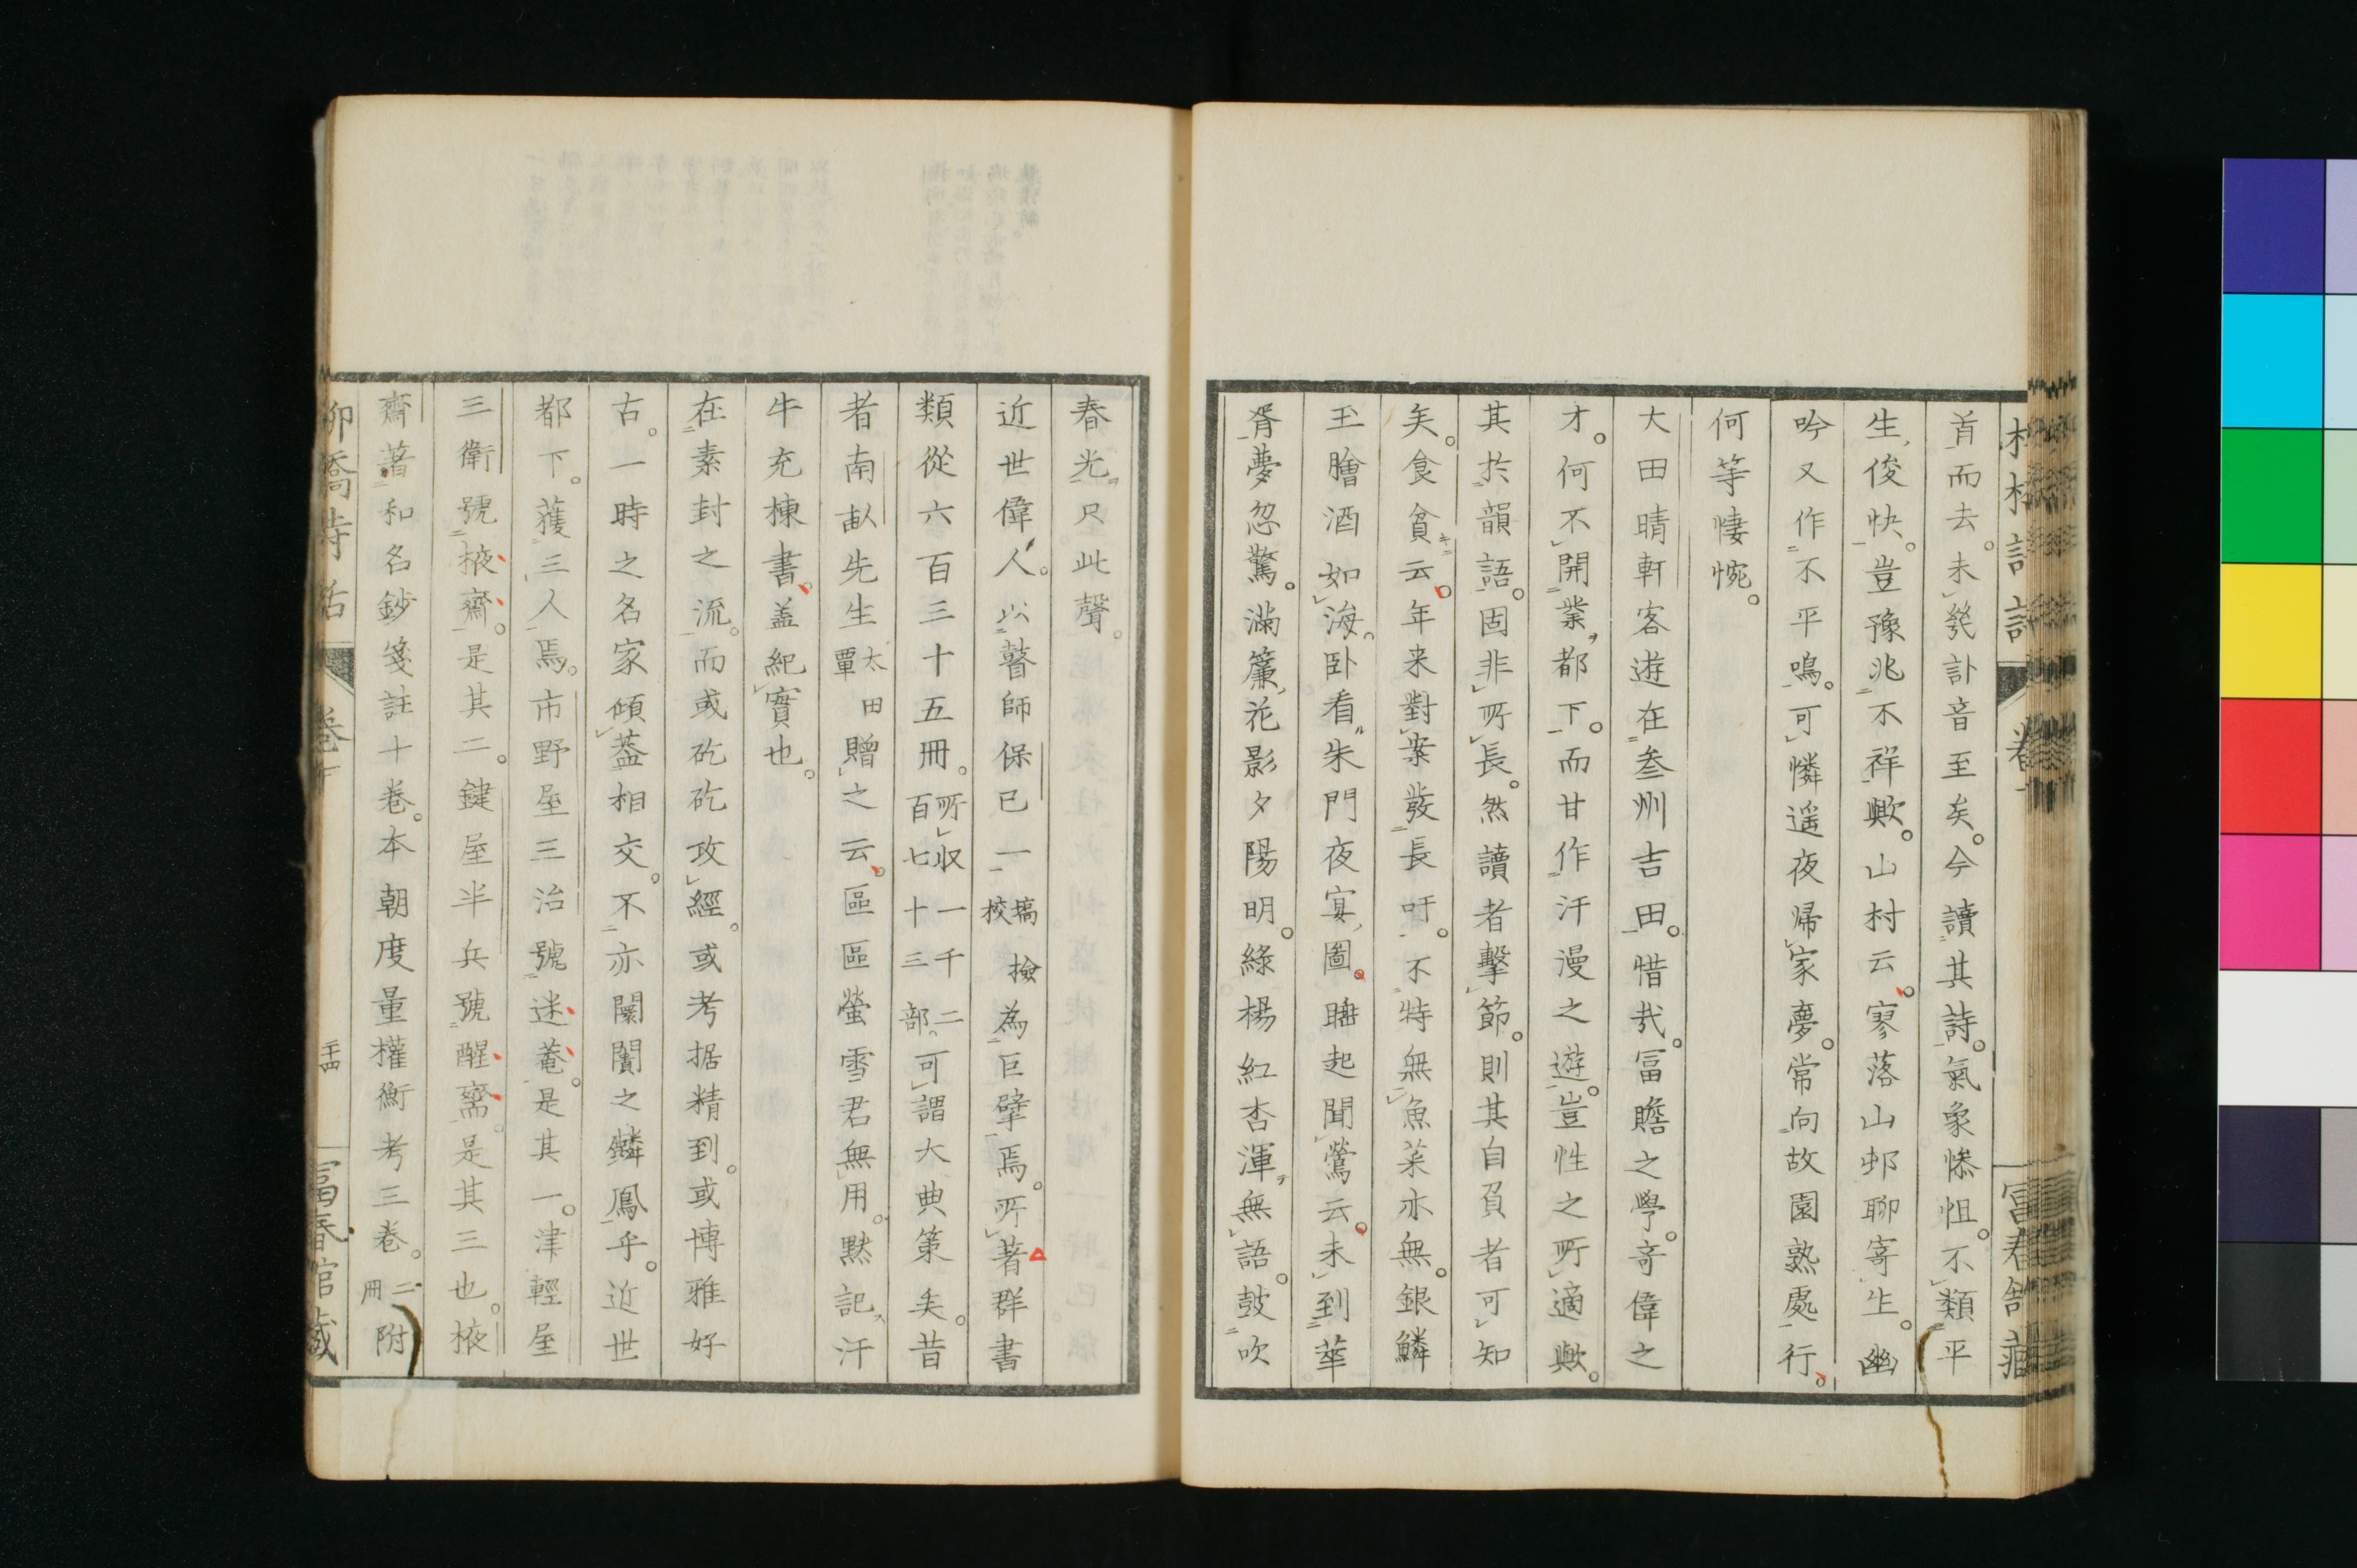 首而去。未發訃音至矣。今讀其詩。氣象慘怛。不類平
生俊快。豈豫兆不祥歟。山村云。寥落山邨聊寄生。幽
吟又作不平鳴。可憐遥夜帰家夢。常向故園熟處行。
何等悽惋。
大田晴軒客遊在叁州吉田。惜哉。冨贍之學。奇偉之
才。何不開業都下。而甘作汗漫之遊。豈性之所適歟。
其於韻語。固非所長。然讀者擊節。則其自負者可知
矣。食貧云。年来對案發長吁。不特無魚菜亦無。銀鱗
玉膾酒如海。卧看朱門夜宴圖。睡起聞鶯云。未到華
胥夢忽驚。滿簾花影夕陽明。綠楊紅杏渾無語。鼓吹
春光只此聲。
近世偉人。以瞽師保已一塙檢校為巨擘焉。所著群書
類從六百三十五冊。所収一千二百七十三部。可謂大典策矣。昔
者南畝先生太田覃贈之云。區區螢雪君無用。默記汗
牛充棟書。盖紀實也。
在素封之流。而或矻矻攻經。或考据精到。或博雅好
古。一時之名家傾葢相交。不亦闤闠之鱗鳳乎。近世
都下。獲三人焉。市野屋三治號迷菴。是其一。津輕屋
三衛號掖齋。是其二。鍵屋半兵號醒齋。是其三也。掖
齋著和名鈔箋註十卷。本朝度量權衡考三卷。二冊附
柳橋詩話 卷下 二十四 冨春館藏